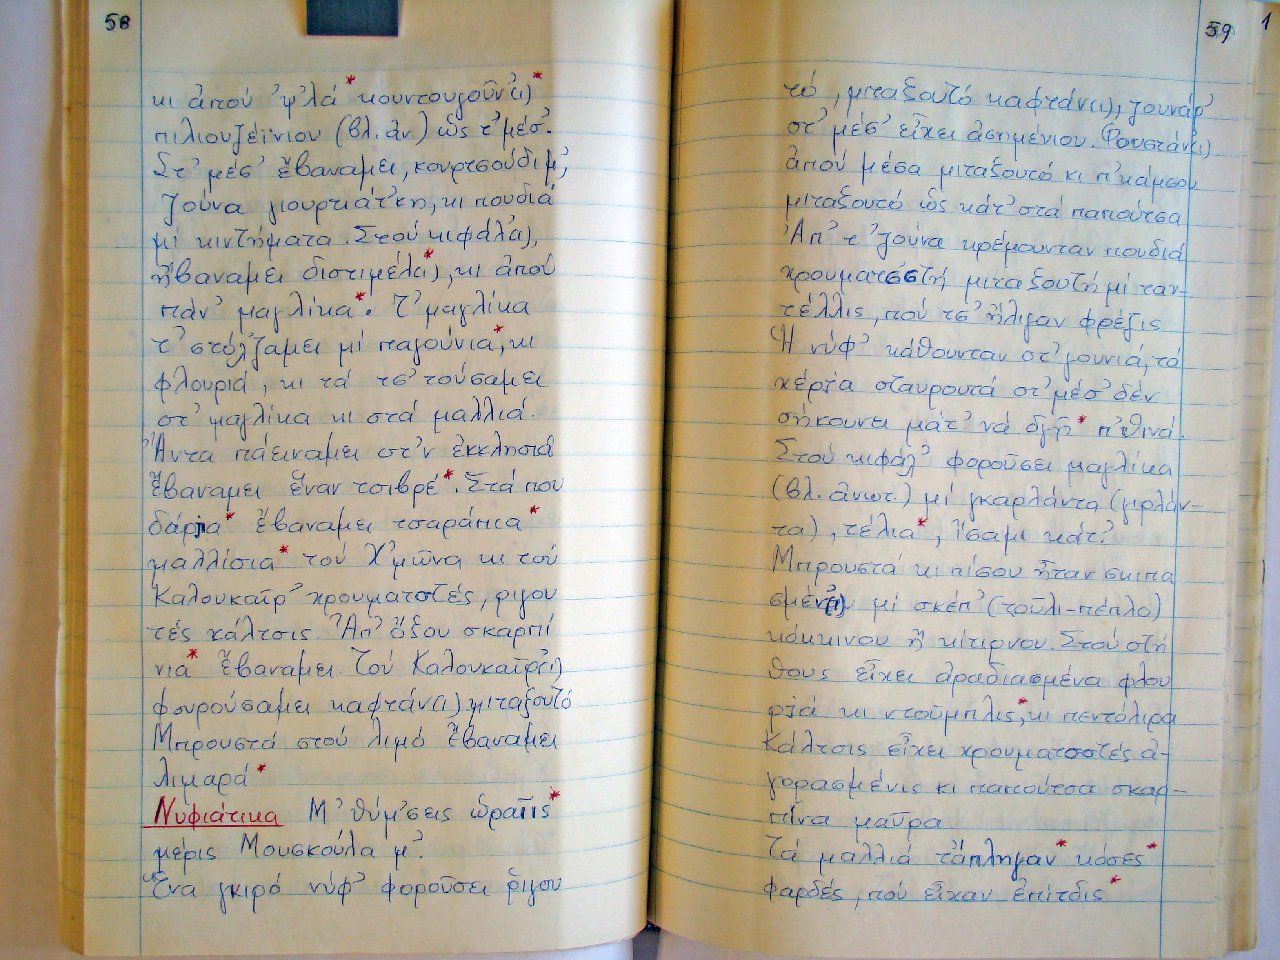 58
κι ἀπού 'ψ'λά* κουντουγοῦν(ι)*
πιλιουζέϊνιου (βλ. ἀν.) ὥς τ' μέσ'.
Στ' μέσ' ἔβαναμει, κουρτσούδιμ',
ζούνα γιουρτιάτ'κη, κι πουδιά
μί κιντήματα. Στού κιφάλ(ι),
ἤβαναμει διστιμέλ(ι)*, κι ἀπού
πάν' μαγλίκα*. Τ' μαγλίκα
τ' στόλ'ζαμει μί παγούνια*, κι
φλουριά, κι τά τσ' τούσαμει
στ' μαγλίκα κι στά μαλλιά.
Ἄντα πάειναμει στ'ν ἐκκλησιά
ἔβαναμει ἕναν τσιβρέ*. Στά που
δάρια* ἔβαναμει τσαράπια*
μαλλίσια* τού Χ'μῶνα κι τού
Καλουκαῖρ' χρουματστές, ριγου
τές κάλτσις. Ἀπ' ὄξου σκαρπί
νια* ἔβαναμει. Τού Καλουκαῖρ(ι)
φουρούσαμει καφτάν(ι) μιταξουτό
Μπρουστά στού λιμό ἔβαναμει
λιμαρά*
Νυφιάτικα Μ' θύμ'σεις ὡραῖις*
μέρις Μουσκούλα μ'.
Ἕνα γκιρό νύφ' φοροῦσει ριγου
59
τό, μιταξουτό καφτάν(ι), ζουνάρ'
στ' μέσ' εἶχει ἀσημένιου. Φουστάν(ι)
ἀπού μέσα μιταξουτό κι π'κάμσου
μιταξουτό ὥς κάτ' στά παπούτσα
Ἀπ' τ' ζούνα κρέμουνταν πουδιά
χρουματσστή μιταξουτή μί ταν-
τέλλις, πού τσ' ἤλιγαν φρέζις
Ἡ νύφ' κάθουνταν στ' γουνιά, τά
χέρια σταυρουτά στ' μέσ' δέν
σήκουνει μάτ' νά δγῆ* π'θινά.
Στού κιφάλ' φοροῦσει μαγλίκα
(βλ. ἀνωτ.) μί γκαρλάντα (γιρλάν-
τα), τέλια*, ἴσαμι κάτ'.
Μπρουστά κι πίσου ἦταν σκιπα
σμέν(η) μί σκέπ' (τοῦλι-πέπλο)
κόκκινου ἤ κίτιρνου. Στού στή
θους εἶχει ἀραδιασμένα φλου
ριά κι ντοῦμπλις*, κι πεντόλιρα
Κάλτσις εἶχει χρουματσστές ἀ-
γορασμένις κι παπούτσα σκαρ-
πίνα μαῦρα
Τά μαλλιά τἄπληγαν* κόσες*
φαρδές, πού εἶχαν ἐπίτδις*
1